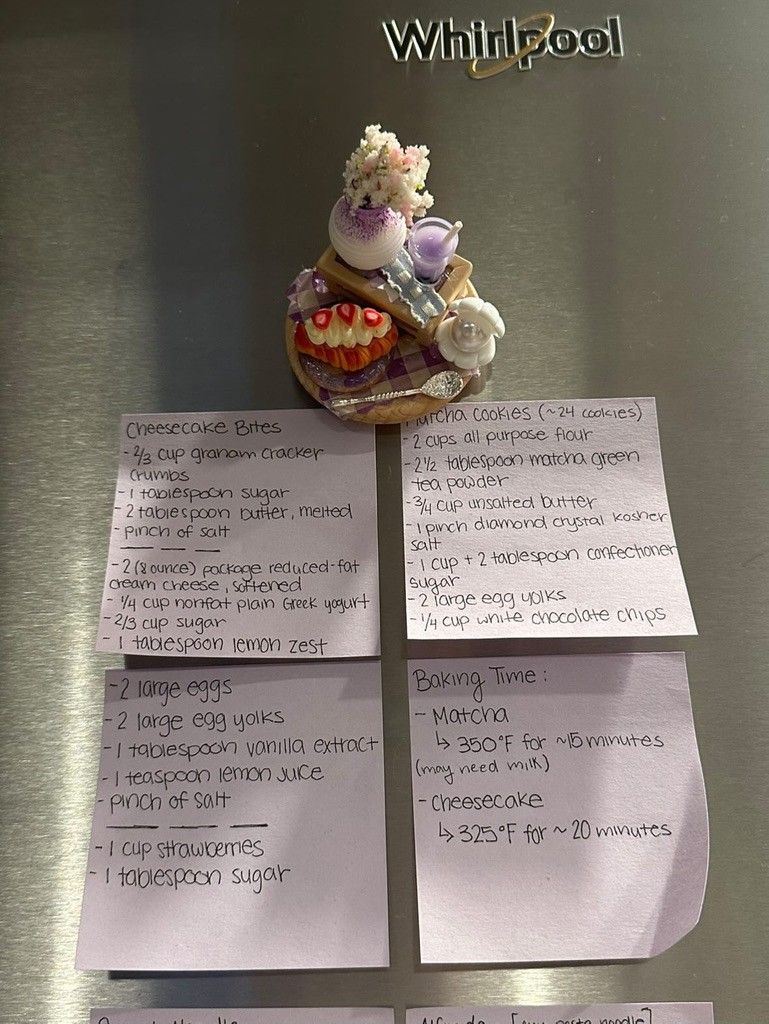 Whirlpool
Cheesecake Bites
- 2/3 cup graham cracker
crumbs
- 1 tablespoon sugar
- 2 tablespoon butter, melted
- pinch of salt
- 2 (8 ounce) package reduced-fat
cream cheese, softened
- 1/4 cup nonfat plain Greek yogurt
- 2/3 cup sugar
- 1 tablespoon lemon zest
- 2 large eggs
- 2 large egg yolks
- 1 tablespoon vanilla extract
- 1 teaspoon lemon juice
- pinch of salt
- 1 cup strawberries
- 1 tablespoon sugar
Matcha cookies (~24 cookies)
- 2 cups all purpose flour
- 2 1/2 tablespoon matcha green
tea powder
- 3/4 cup unsalted butter
- 1 pinch diamond crystal kosher
salt
- 1 cup + 2 tablespoon confectioner
sugar
- 2 large egg yolks
- 1/4 cup white chocolate chips
Baking Time:
- Matcha
↳ 350°F for ~15 minutes
(may need milk)
- cheesecake
↳ 325°F for ~ 20 minutes